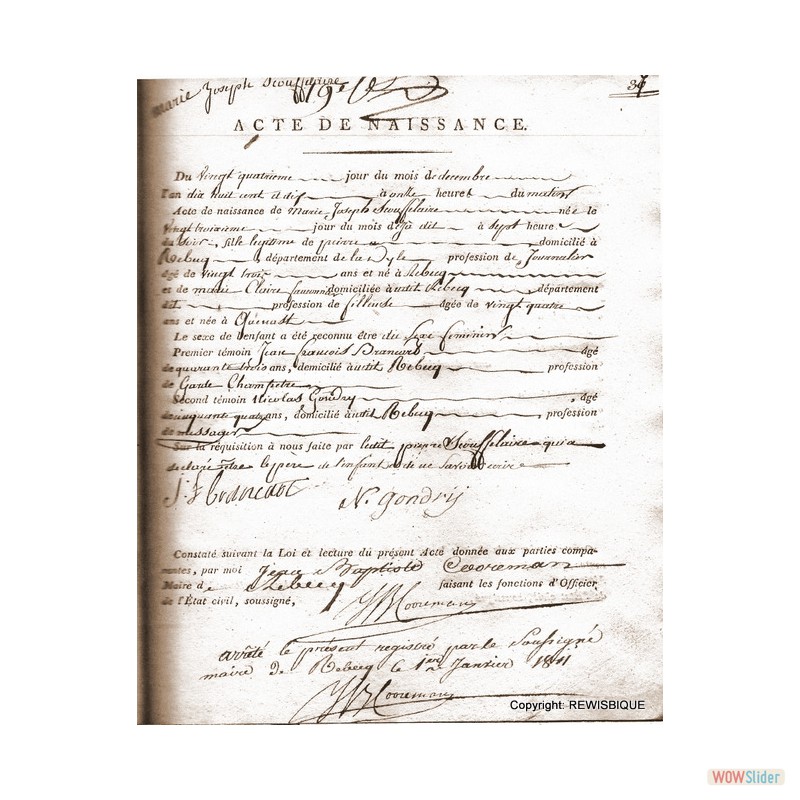 marie Joseph Scouffelaire
79e
37
ACTE DE NAISSANCE.
Du vingt quatrieme jour du mois de decembre
l'an dix huit cent et dix à onze heures du matin
Acte de naissance de marie Joseph Scouffelaire née le
vingt troisieme jour du mois déjà dit à sept heures
du soir, fille legitime de pierre domicilié à
Rebecq, département de la Dyle, profession de Journalier
âgé de vingt trois ans et né à Rebecq
et de marie Claire domiciliée audit Rebecq département
dit profession de fileuse âgée de vingt quatre
ans et née à Quenast
Le sexe de l'enfant a été reconnu être du Sexe feminin
Premier témoin Jean francois Brancart âgé
de quarante trois ans, domicilié audit Rebecq, profession
de Garde Champetre
Second témoin Nicolas Gondry, âgé
de cinquante quatre ans, domicilié audit Rebecq, profession
de messager
Sur la réquisition à nous faite par ledit pierre Scouffelaire qui a
declaré être le pere de l'enfant et de ne savoir ecrire
N. gondrij
Constaté suivant la Loi et lecture du présent Acte donnée aux parties compa-
rantes, par moi Jean Baptiste Cooreman
Maire de Rebecq faisant les fonctions d'Officier
de l'État civil, soussigné,
JB Cooreman
arrêté le présent registre par le Soussigné
maire de Rebecq le 1er Janvier 1811
JB Cooreman
Copyright: REWISBIQUE
WOWSlider